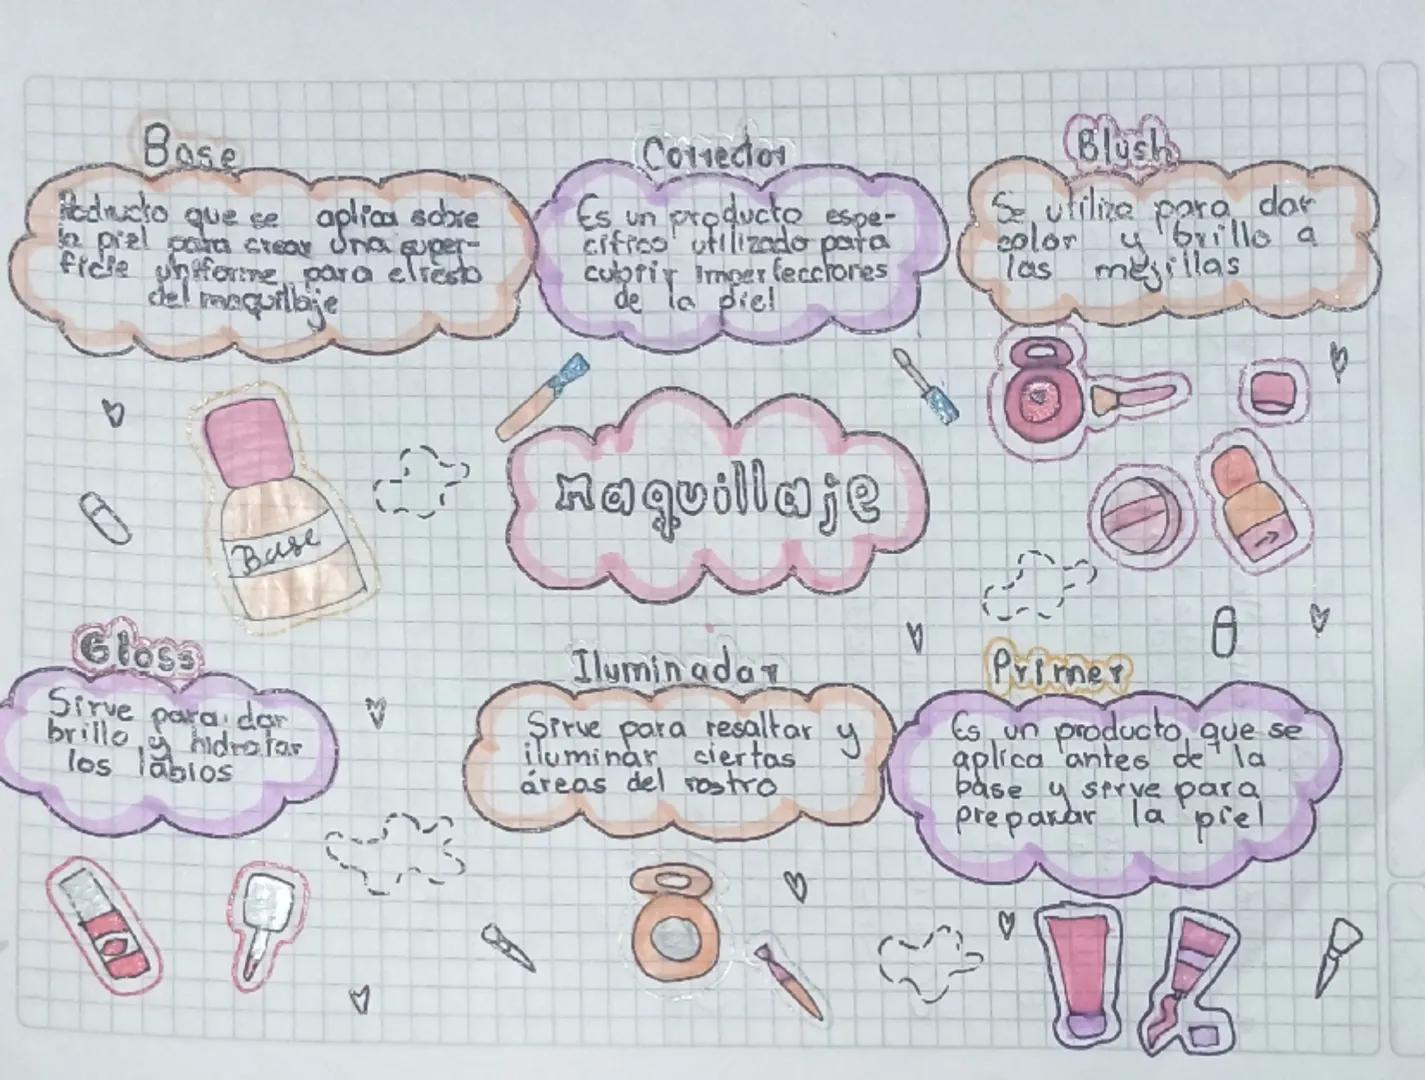 Base
Producto que se aplica sobre
la piel para crear una super-
ficie uniforme para el resto
del maquillaje
Corrector
Es un producto espe-
cífico utilizado para
cubrir imperfecciones
de la piel
Blush
Se utiliza para dar
color y brillo a
las mejillas
Maquillaje
Base
Gloss
Sirve para dar
brillo y hidratar
los labios
Iluminador
Sirve para resaltar y
iluminar ciertas
áreas del rostro
Primer
Es un producto que se
aplica antes de la
base y sirve para
preparar la piel